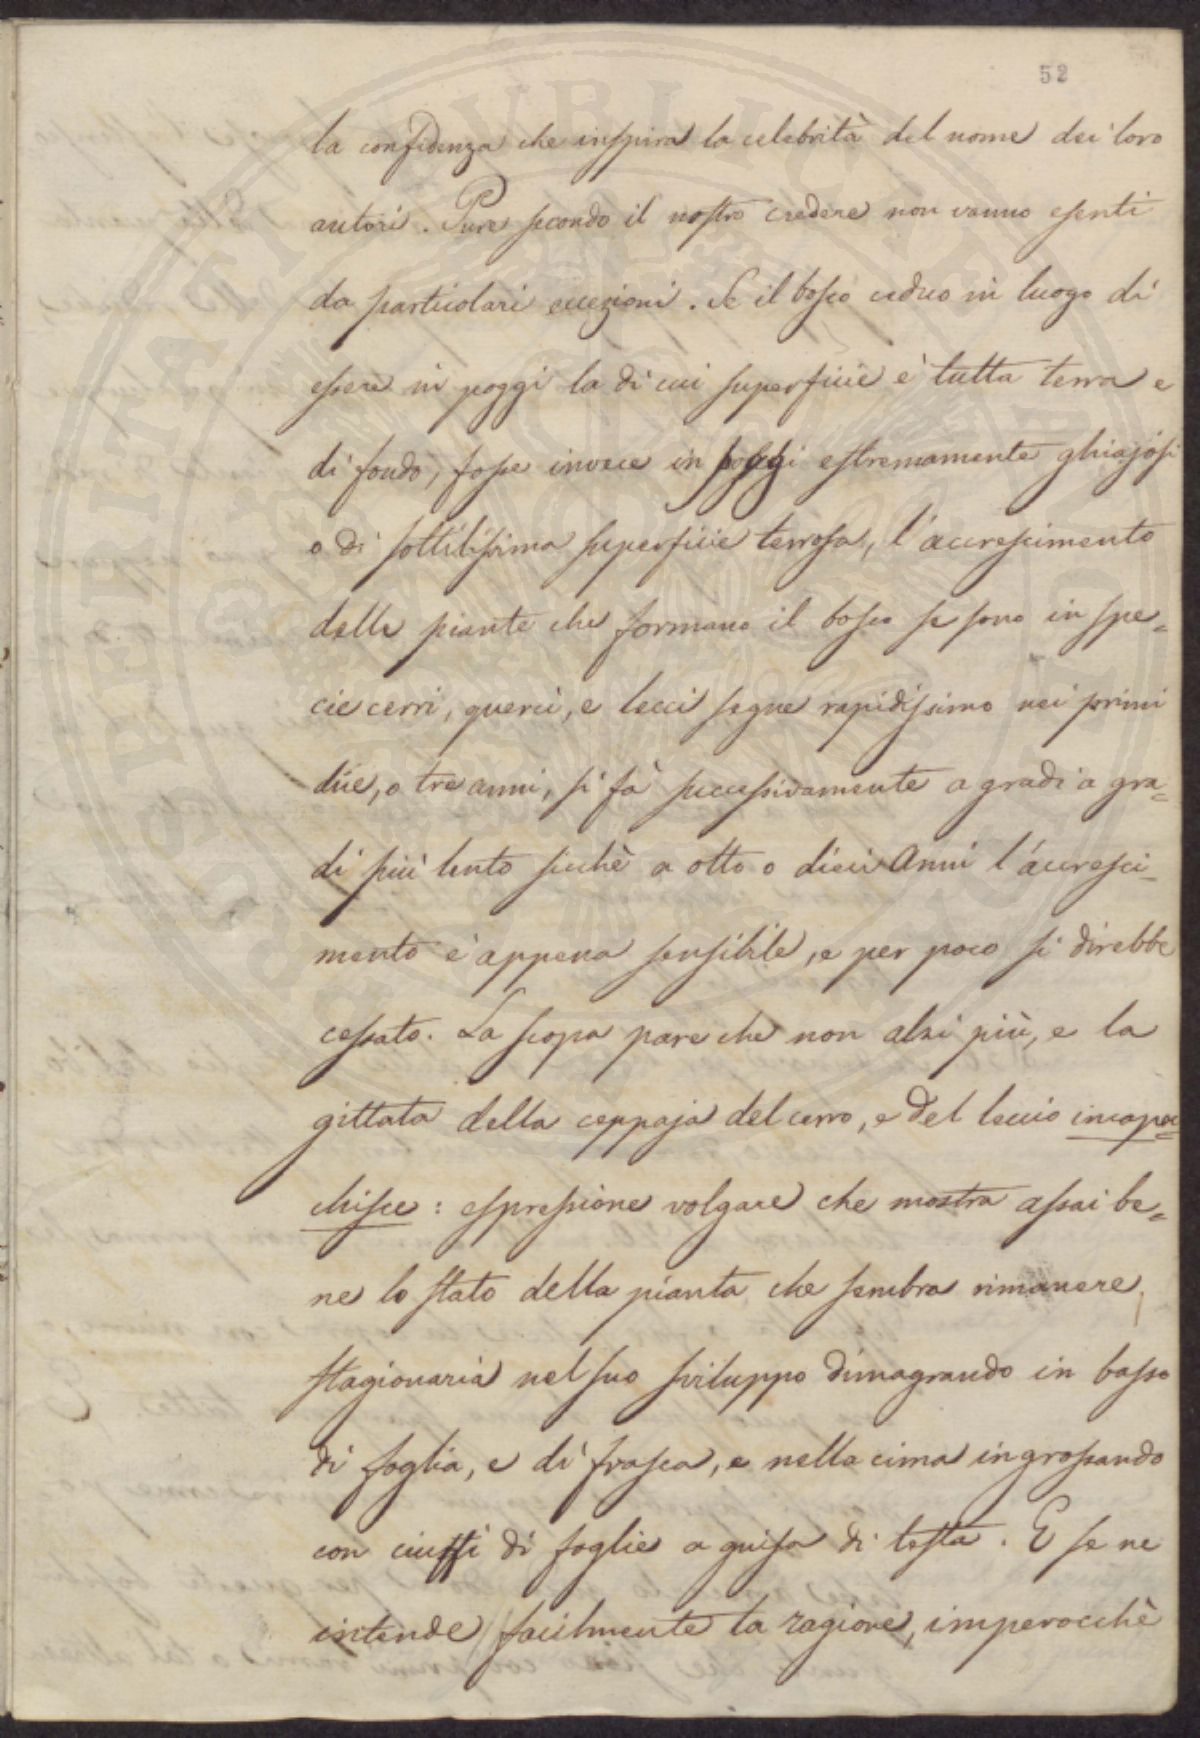 52
la confidenza che inspira la celebrità del nome dei loro
autori. Pure secondo il nostro credere non vanno esenti
da particolari eccezioni. Se il bosco ceduo in luogo di
essere in poggi la di cui superficie è tutta terra e
di fondo, fosse invece in poggi estremamente ghiajosi
o di sottilissima superficie terrosa, l'accrescimento
delle piante che formano il bosco se sono in spe=
cie cerri, querci, e lecci segue rapidissimo nei primi
due, o tre anni, si fà successivamente a gradi a gra=
di più lento sicchè a otto o dieci Anni l'accresci=
mento è appena sensibile, e per poco si direbbe
cessato. La scopa pare che non alzi più, e la
gittata della ceppaja del cerro, e del leccio incapac=
chisce: espressione volgare che mostra assai be=
ne lo stato della pianta che sembra rimanere
stagionaria nel suo sviluppo dimagrando in basso
di foglia, e di frasca, e nella cima ingrossando
con ciuffi di foglie a guisa di testa. E se ne
intende facilmente la ragione, imperocchè